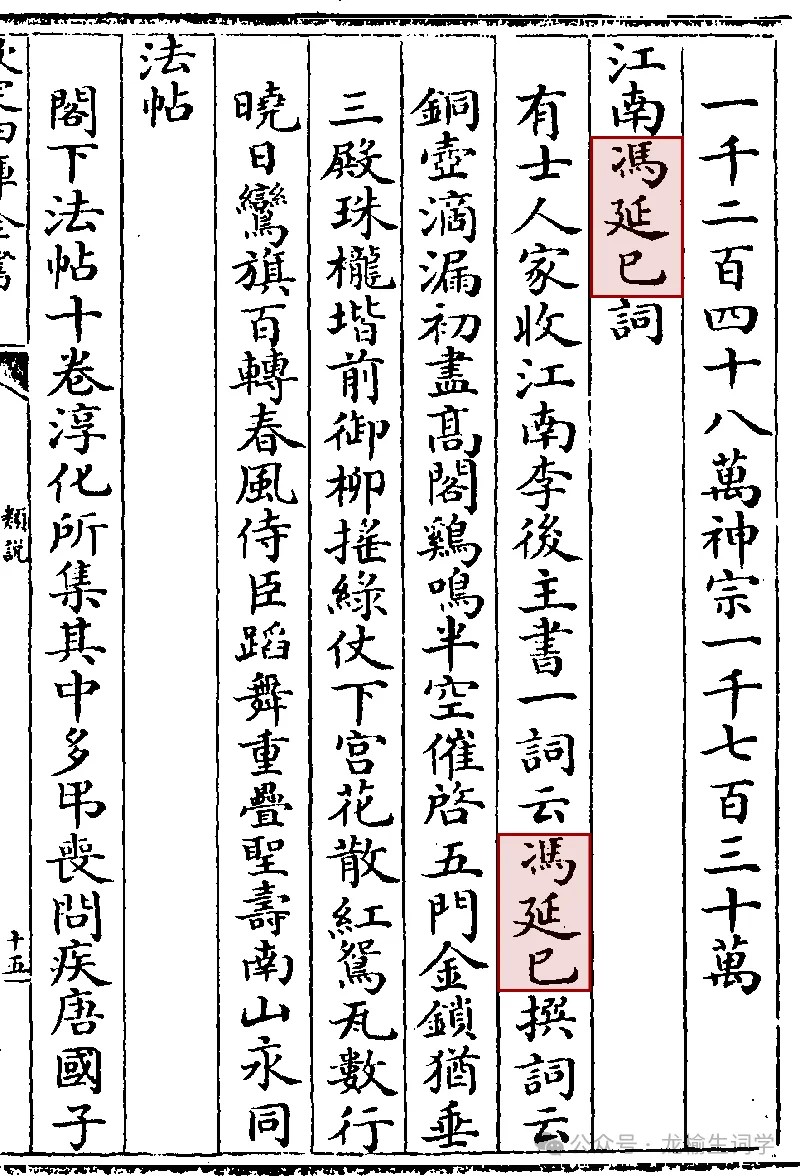 一千二百四十八萬神宗一千七百三十萬
江南馮延巳詞
有士人家收江南李後主書一詞云馮延巳撰詞云
銅壺滴漏初盡高閣鷄鳴半空催啓五門金鎖猶垂
三殿珠櫳堦前御柳搖綠仗下宮花散紅鴛瓦數行
曉日鸞旗百轉春風侍臣蹈舞重疊聖壽南山永同
法帖
閣下法帖十卷淳化所集其中多弔喪問疾唐國子
欽定四庫全書
類說
十五
公众号·龙榆生词学